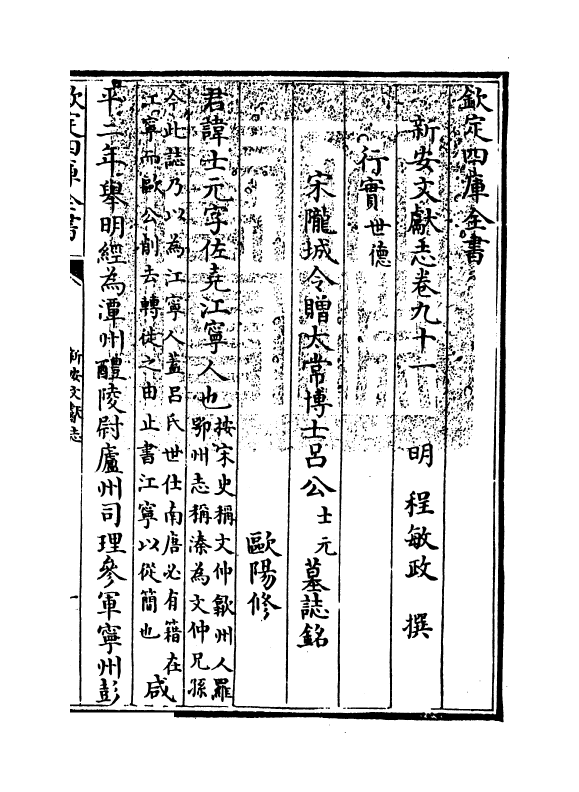 欽定四庫全書
新安文獻志卷九十一　明　程敏政　撰
行實世德
宋隴城令贈太常博士呂公士元墓誌銘
歐陽修
君諱士元字佐堯江寧人也按宋史稱文仲歙州人羅
鄂州志稱溱為文仲兄孫
今此誌乃以為江寧人蓋呂氏世仕南唐必有籍在
江寧而歐公削去轉徙之由止書江寧以從簡也咸
平二年舉明經為潭州醴陵尉廬州司理參軍寧州彭
欽定四庫全書
新安文獻志
一